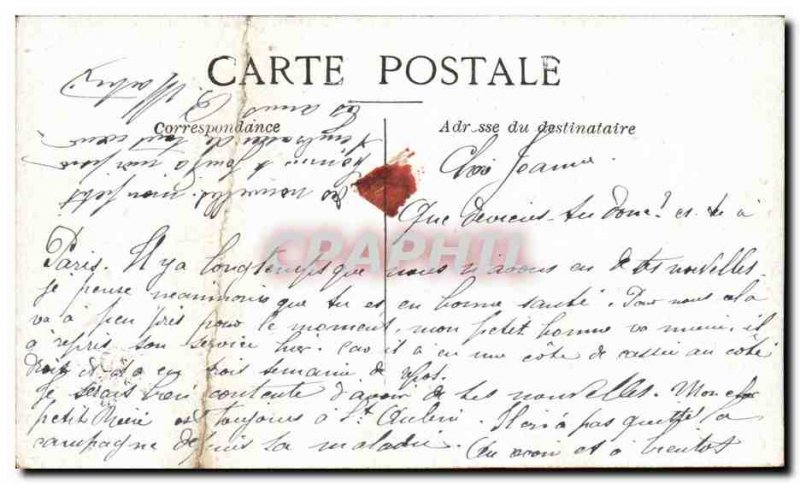 CARTE POSTALE
Correspondance
Adresse du destinataire
Joanna
Que deviens-tu donc? es tu à
Paris. Il y a longtemps que nous n'avons eu de tes nouvelles
je pense neanmoins que tu es en bonne santé. Pour nous cela
va à peu près pour le moment, mon petit homme va mieux, il
a repris son service hier. car il a eu une côte de cassée au côté
droit et il a eu trois semaine de repos.
Je serais bien contente d'avoir de tes nouvelles. Mon cher
petit est toujours à St Aubin. Il n'a pas quitté la
campagne depuis sa maladie. Au revoir et à bientot
des nouvelles. mon petit
homme se joint à moi pour
t'embrasser de tout cœur
tes amis
CRAPHIL